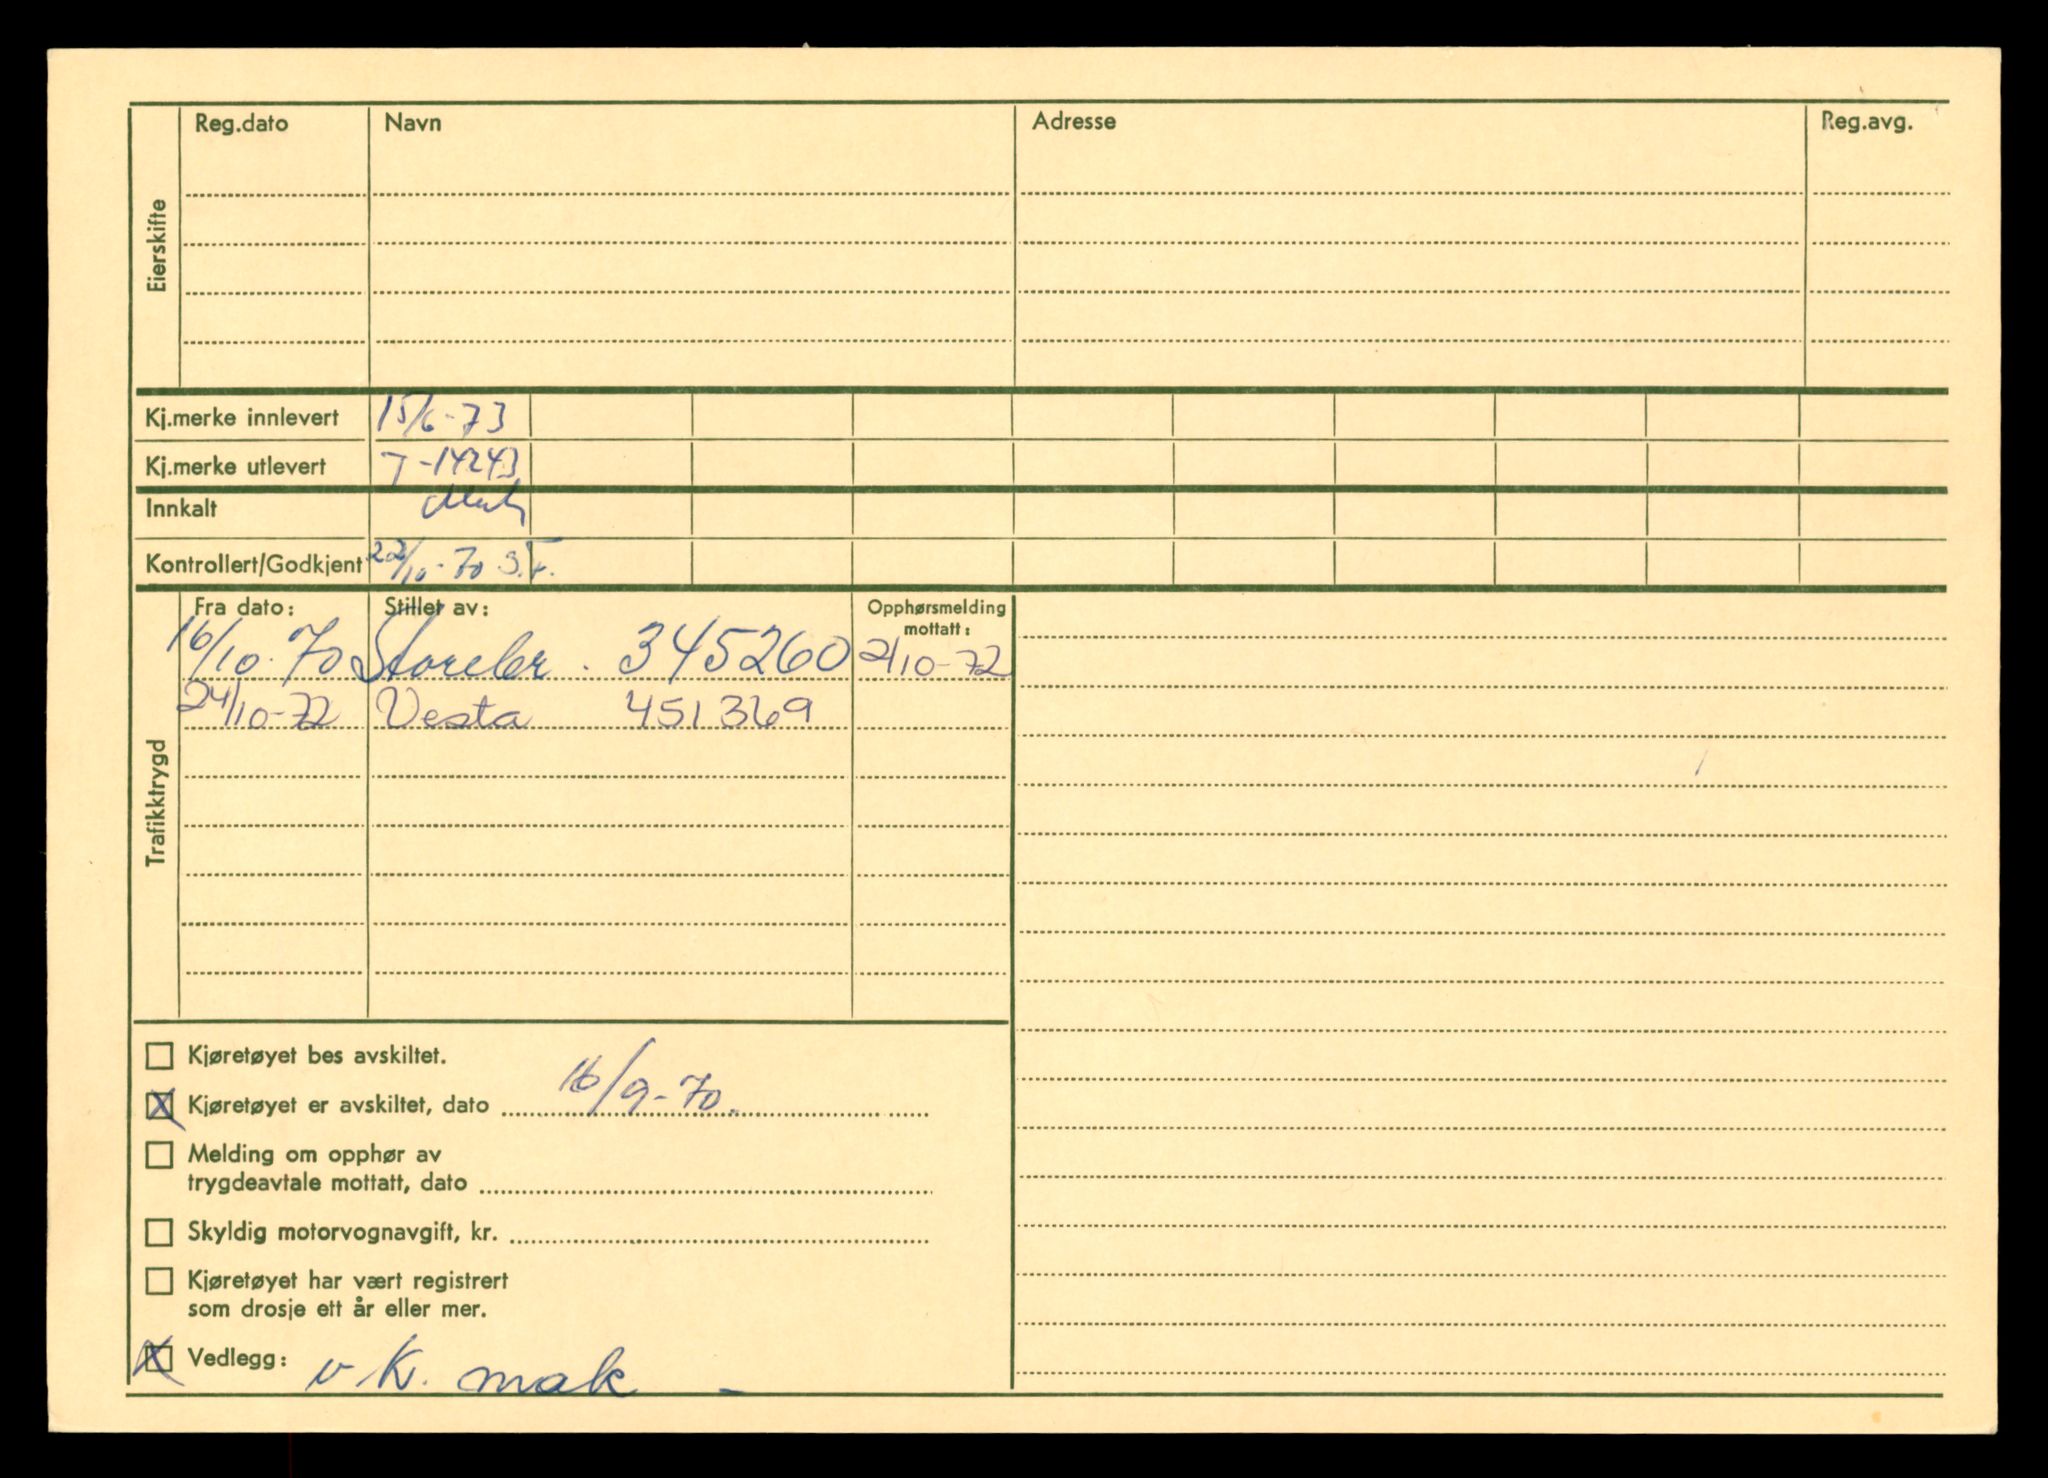 Eierskifte
Reg.dato Navn Adresse Reg.avg.
Kj.merke innlevert 15/6-73
Kj.merke utlevert T-14243
Innkalt
Kontrollert/Godkjent 22/10-70 S.F.
Trafikktrygd
Fra dato: Stillet av: Opphørsmelding mottatt:
16/10.70 Storebr. 345260 2/10-72
24/10-72 Vesta 451369
Kjøretøyet bes avskiltet.
X Kjøretøyet er avskiltet, dato 16/9-70.
Melding om opphør av
trygdeavtale mottatt, dato
Skyldig motorvognavgift, kr.
Kjøretøyet har vært registrert
som drosje ett år eller mer.
X Vedlegg: v.k. mak